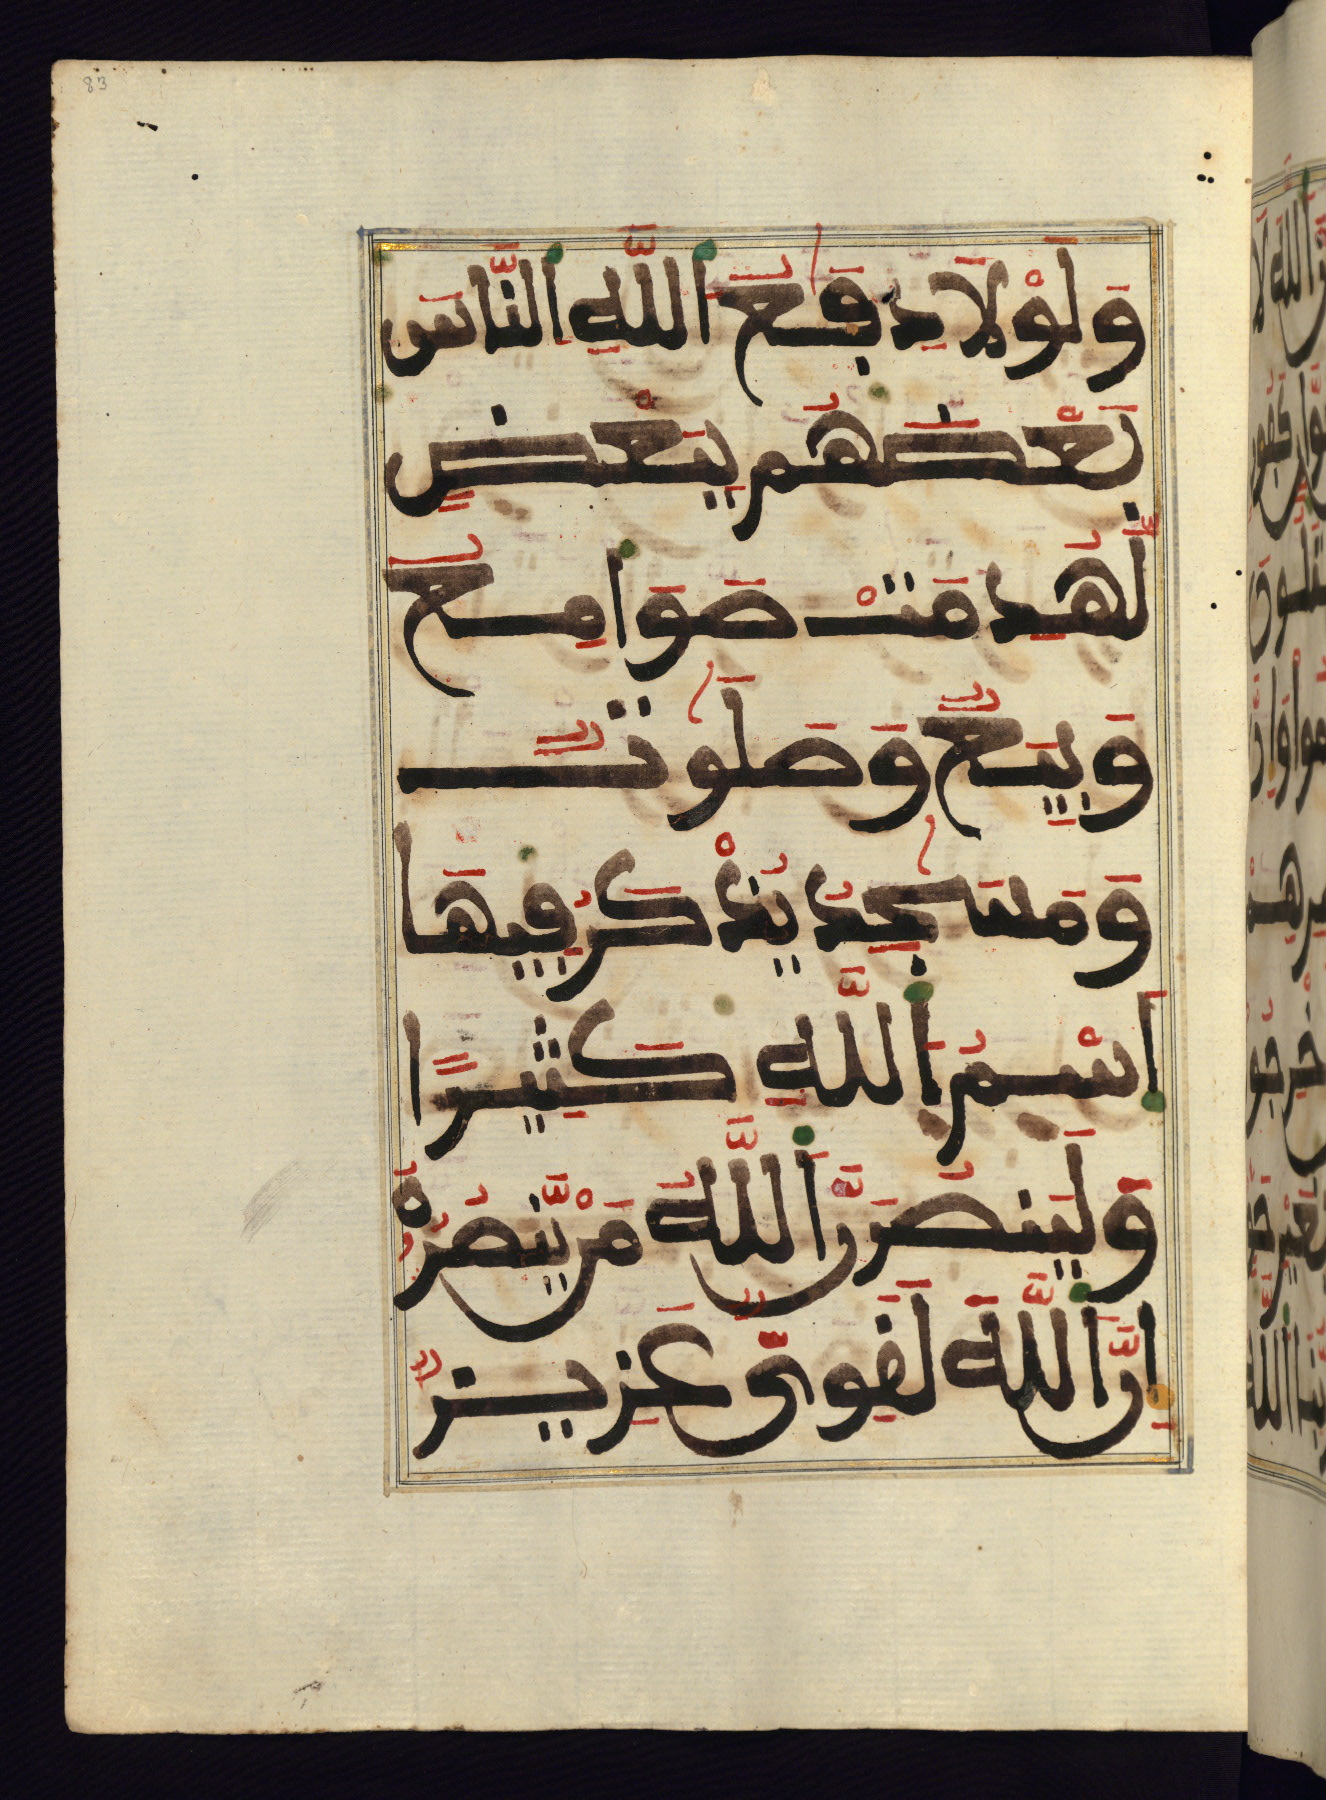 83
وَلَوْلَا دِفَٰعُ اللَّهِ النَّاسَ
بَعْضَهُم بِبَعْضٍ
لَّهُدِمَتْ صَوَامِعُ
وَبِيَعٌ وَصَلَوَٰتٌ
وَمَسَٰجِدُ يُذْكَرُ فِيهَا
اسْمُ اللَّهِ كَثِيرًا
وَلَيَنصُرَنَّ اللَّهُ مَنْ يَّنصُرُهُ
إِنَّ اللَّهَ لَقَوِىٌّ عَزِيزٌ